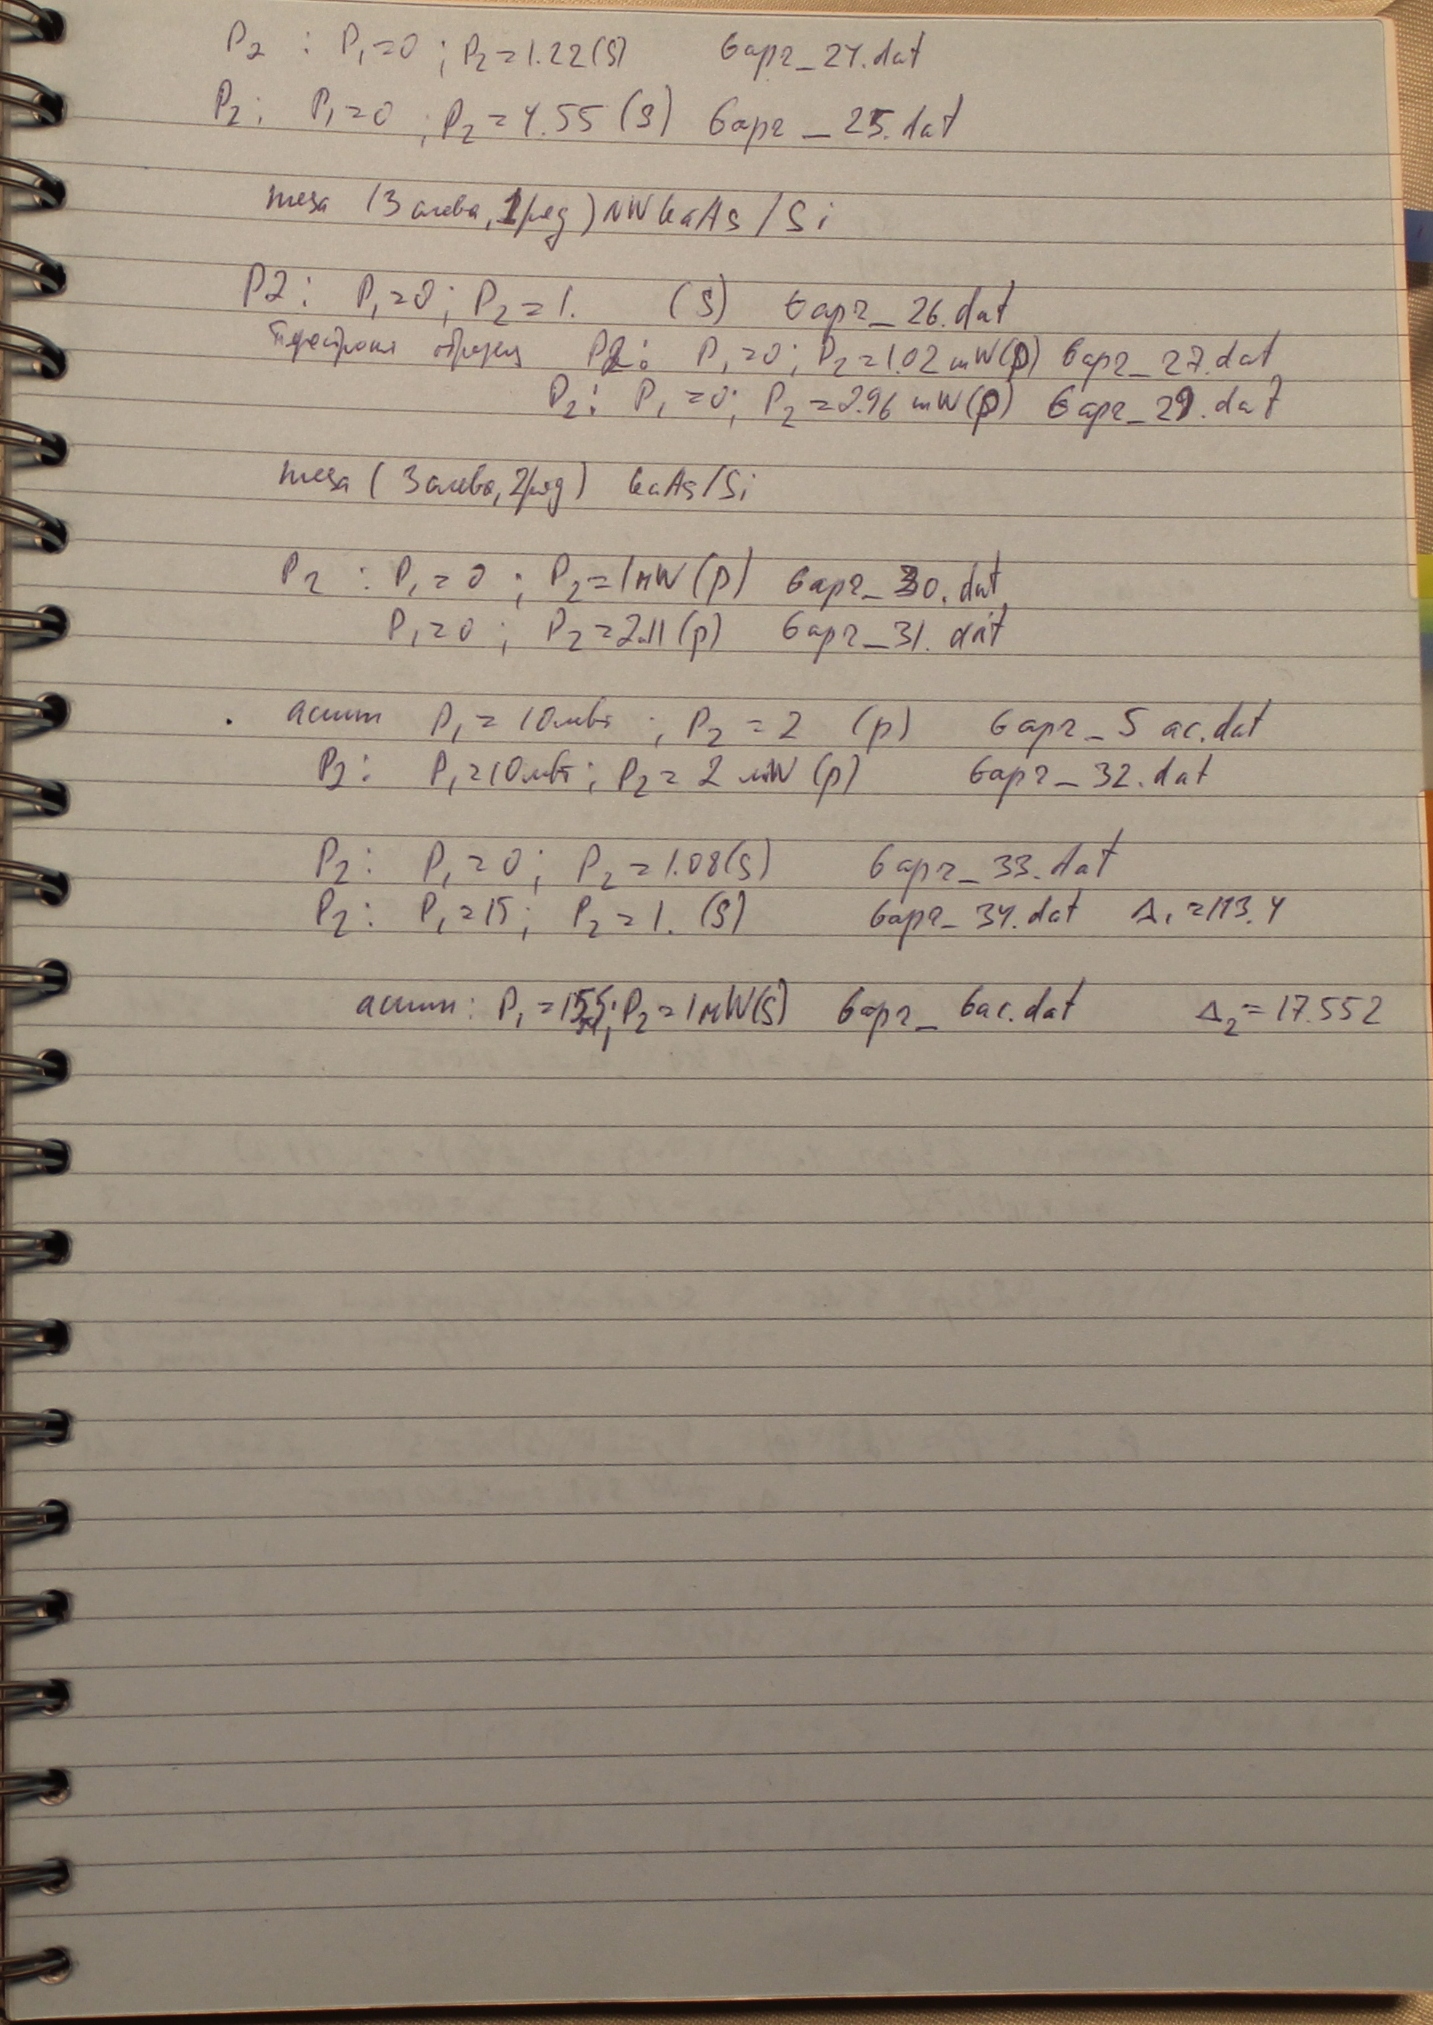 P₂ : P₁=0 ; P₂=1.22(S) 6apr_24.dat
P₂: P₁=0 ; P₂=4.55 (S) 6apr_25.dat
меза (3 слева, 1ряд) NW GaAs/Si
P2: P₁=0; P₂=1. (S) 6apr_26.dat
Перестроил образец P2: P₁=0; P₂=1.02 mW(p) 6apr_27.dat
P₂: P₁=0; P₂=2.96 mW(p) 6apr_29.dat
меза (3 слева, 2ряд) GaAs/Si
P₂ : P₁=0 ; P₂=1мW (p) 6apr_30.dat
P₁=0 ; P₂=2.11(p) 6apr_31.dat
асимм P₁=10мвт ; P₂=2 (p) 6apr_5ac.dat
P₂: P₁=10мвт; P₂=2 mW (p) 6apr_32.dat
P₂: P₁=0; P₂=1.08(S) 6apr_33.dat
P₂: P₁=15; P₂=1. (S) 6apr_34.dat Δ₁=113.4
асимм: P₂=1мW(S) 6apr_6ac.dat Δ₂=17.552